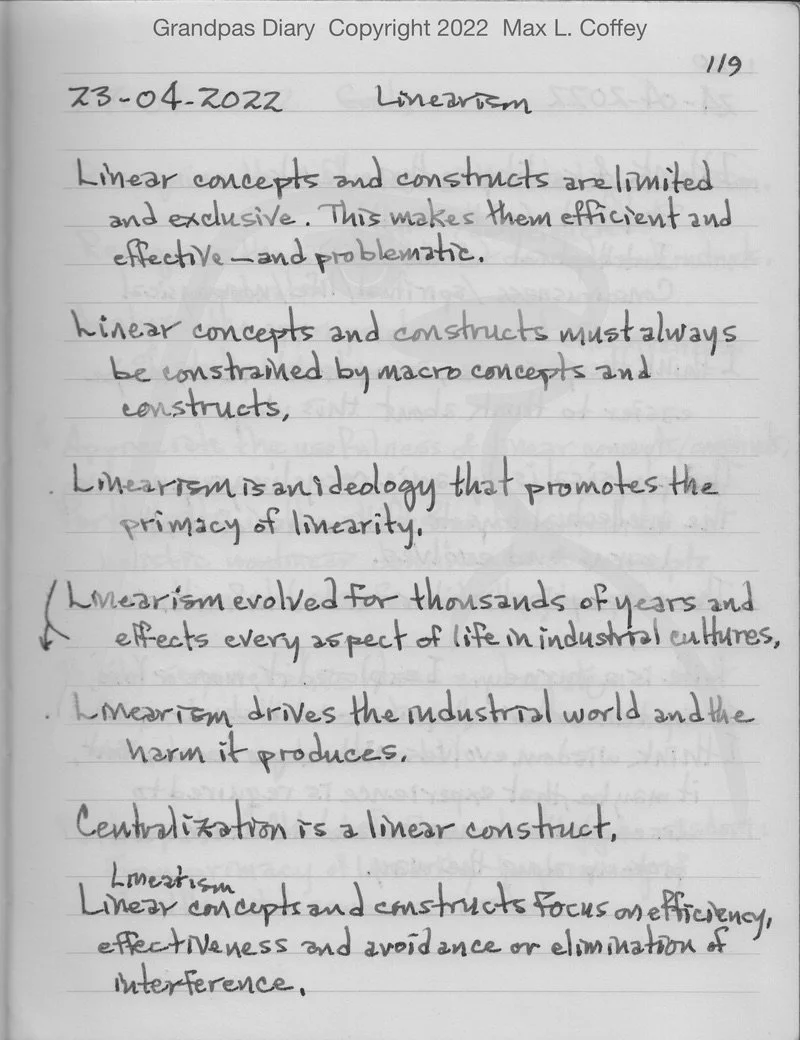 Grandpas Diary Copyright 2022 Max L. Coffey
119
23-04-2022 Linearism
Linear concepts and constructs are limited
and exclusive. This makes them efficient and
effective — and problematic.
Linear concepts and constructs must always
be constrained by macro concepts and
constructs.
Linearism is an ideology that promotes the
primacy of linearity.
Linearism evolved for thousands of years and
effects every aspect of life in industrial cultures.
Linearism drives the industrial world and the
harm it produces.
Centralization is a linear construct.
Linearism
Linear concepts and constructs focus on efficiency,
effectiveness and avoidance or elimination of
interference.